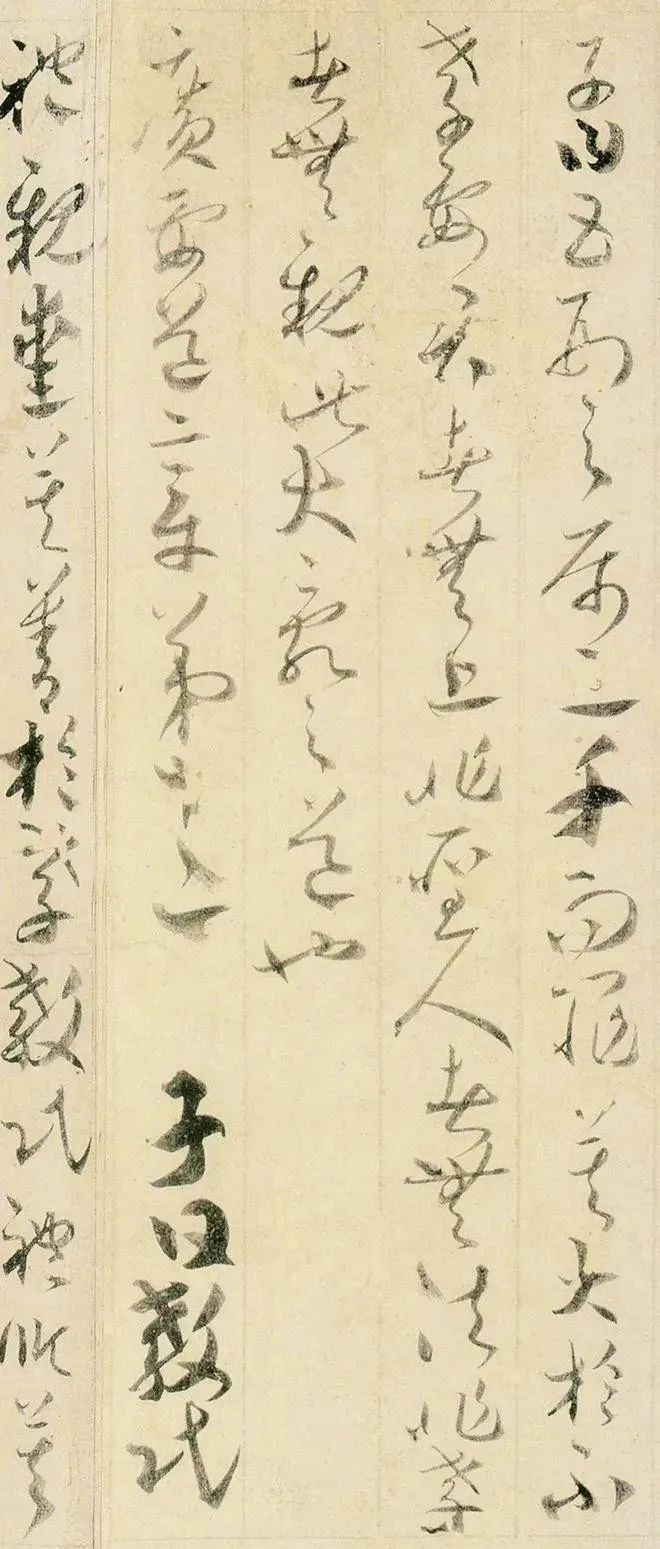 子曰五刑之屬三千而罪莫大於不
孝要君者無上非聖人者無法非孝
者無親此大亂之道也
廣要道章第十二 子曰教民
禮親愛莫善於孝教民禮順莫